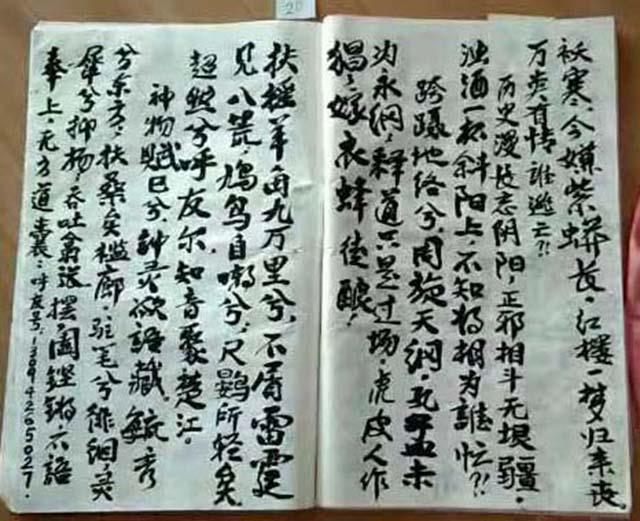 20
袄寒、今嫌紫蟒长。红楼一梦归来丧。
万类有情谁逃云?!
历史漫长忘阴阳,正邪相斗无垠疆。
浊酒一杯斜阳上,不知将相为谁忙?!
跨蹑地络兮,周旋天纲。孔孟未
为永纲,释道只是过场。虎皮人作
猖,嫁衣蜂徒酿。
扶摇羊角九万里兮,不屑雷霆
见八荒。鸟自嘲兮,尺鷃所轻矣
超然兮呼友尔,知音聚楚江。
神物赋巳兮,神灵欲语藏。毓秀
兮东方;扶桑矣槛廊。驻笔兮徘徊,灵
犀兮抑扬。吞吐翕张摆阖铿锵六语
奉上。无方道:呼友号:13094265027.